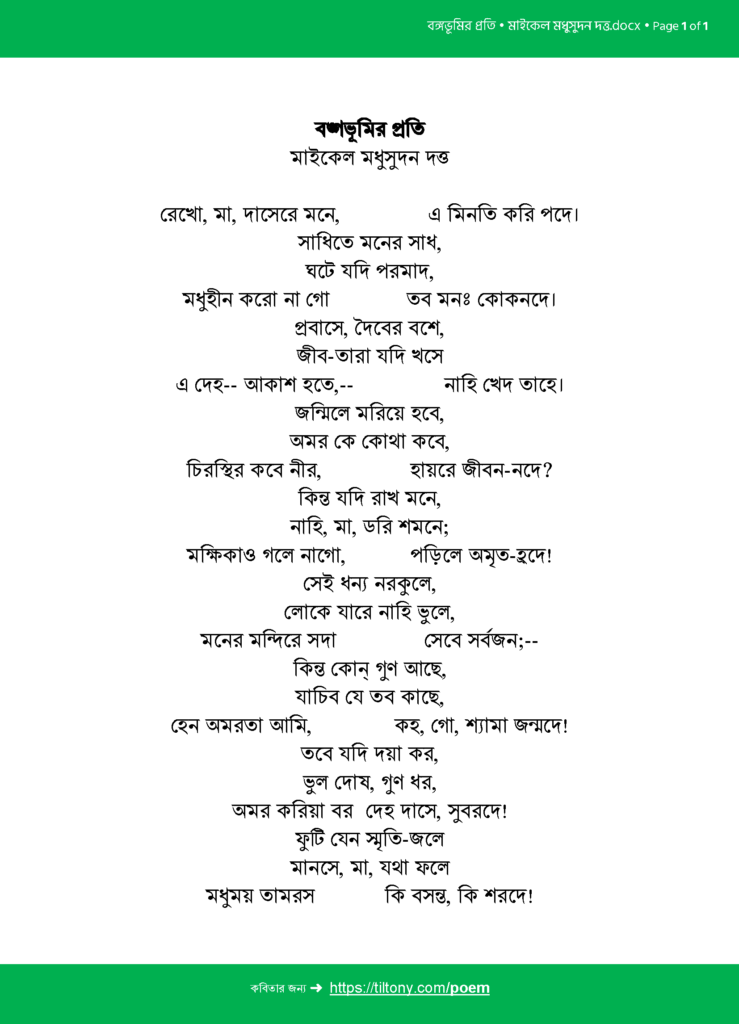 বঙ্গভূমির প্রতি • মাইকেল মধুসুদন দত্ত.docx • Page 1 of 1
বঙ্গভূমির প্রতি
মাইকেল মধুসুদন দত্ত
রেখো, মা, দাসেরে মনে, এ মিনতি করি পদে।
সাধিতে মনের সাধ,
ঘটে যদি পরমাদ,
মধুহীন করো না গো তব মনঃ কোকনদে।
প্রবাসে, দৈবের বশে,
জীব-তারা যদি খসে
এ দেহ-- আকাশ হতে,-- নাহি খেদ তাহে।
জন্মিলে মরিয়ে হবে,
অমর কে কোথা কবে,
চিরস্থির কবে নীর, হায়রে জীবন-নদে?
কিন্ত যদি রাখ মনে,
নাহি, মা, ডরি শমনে;
মক্ষিকাও গলে নাগো, পড়িলে অমৃত-হ্রদে!
সেই ধন্য নরকুলে,
লোকে যারে নাহি ভুলে,
মনের মন্দিরে সদা সেবে সর্বজন;--
কিন্ত কোন্ গুণ আছে,
যাচিব যে তব কাছে,
হেন অমরতা আমি, কহ, গো, শ্যামা জন্মদে!
তবে যদি দয়া কর,
ভুল দোষ, গুণ ধর,
অমর করিয়া বর দেহ দাসে, সুবরদে!
ফুটি যেন স্মৃতি-জলে
মানসে, মা, যথা ফলে
মধুময় তামরস কি বসন্ত, কি শরদে!
কবিতার জন্য ➜ https://tiltony.com/poem